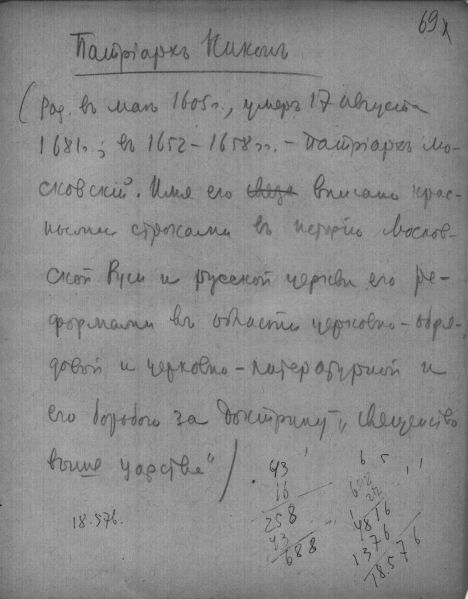 69
Патріархъ Никонъ
(Род. въ маѣ 1605 г., умеръ 17 августа
1681 г.; въ 1652-1658 гг. - Патріархъ Мо-
сковскій. Имя его связа вписано крас-
ными строками въ исторію Москов-
ской Руси и русской церкви его ре-
формами въ области церковно-обря-
довой и церковно-литературной и
его борьбою за доктрину „священство
выше царства“).
18.576.
43
16
258
43
688
688
27
4816
1376
18576